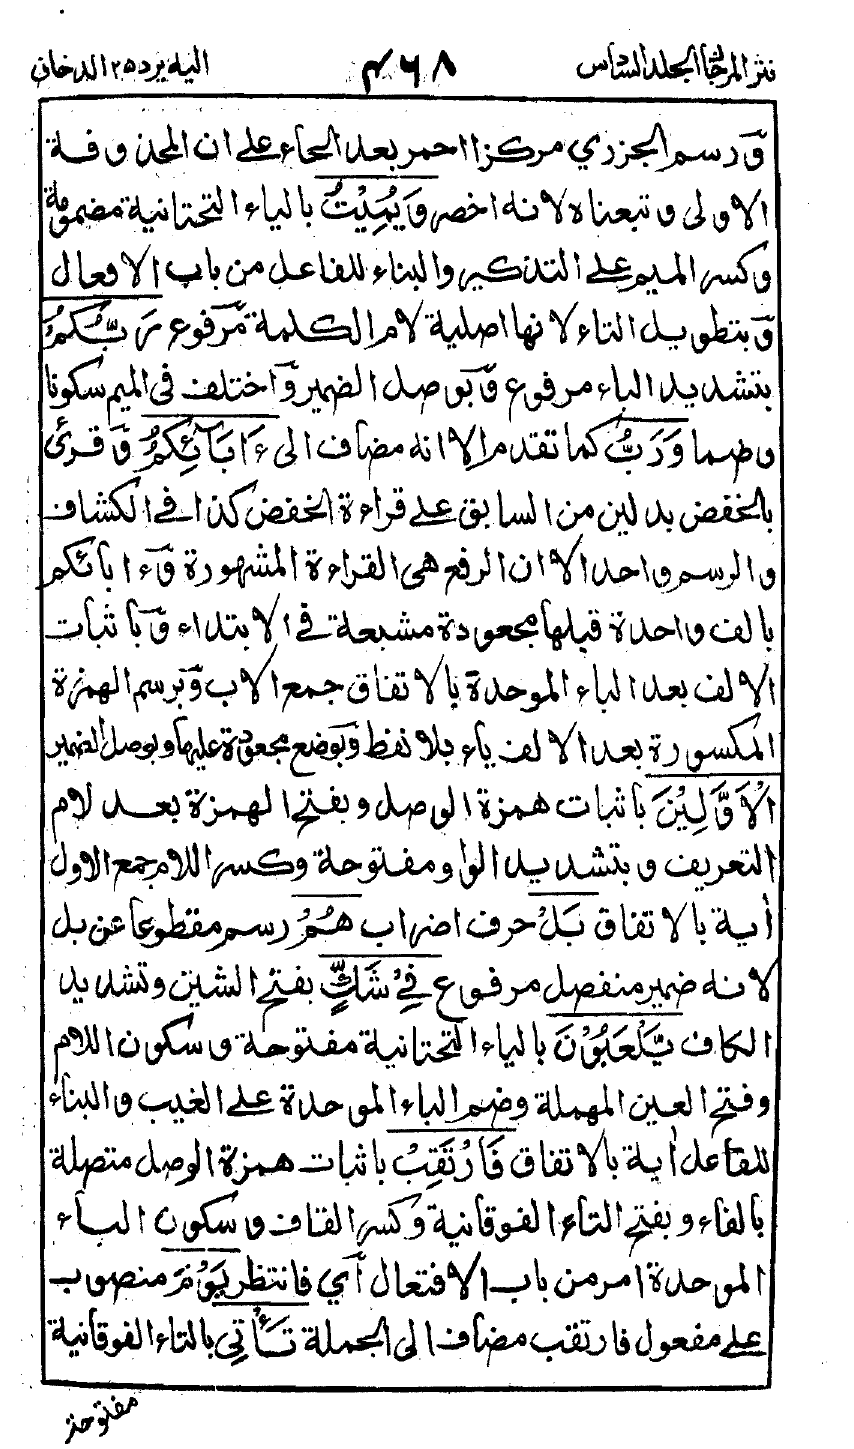 نثر المرجان الجلد السادس ٤٦٨ اليه يرد ٢٥ الدخان
وَّرسم الجزري مركزا احمر بعد الحاء على ان المحذوفة
الاولى و تبعناه لانه اخصر وَيُمِيْتُ بالياء التحتانية مضمومة
وكسر الميم على التذكير والبناء للفاعل من باب الافعال
وَّبتطويل التاء لانها اصلية لام الكلمة مَّرفوع رَبُّكُمْ
بتشديد الباء مرفوع وَّبوصل الضمير وَّاختلف في الميم سكونا
وضما وَرَبُّ كما تقدم الا انه مضاف الى ءَابَآئِكُمُ وَّقرئ
بالخفض بدلين من السابق على قراءة الخفض كذا في الكشاف
والرسم واحد الا ان الرفع هى القراءة المشهورة وَّءابائكم
بالف واحدة قبلها مجعودة مشبعة في الابتداء وَّباثبات
الالف بعد الباء الموحدة بالاتفاق جمع الاب وَّبرسم الهمزة
المكسورة بعد الالف ياء بلا نقط وَّبوضع مجعودة عليها وبوصل الضمير
الْاَوَّلِيْنَ باثبات همزة الوصل وبفتح الهمزة بعد لام
التعريف وبتشديد الواو مفتوحة وكسر اللام جمع الاول
أية بالاتفاق بَلْ حرف اضراب هُمْ رسم مقطوعا عن بل
لانه ضمير منفصل مرفوع فِيْ شَكٍّ بفتح الشين وتشديد
الكاف يَّلْعَبُوْنَ بالياء التحتانية مفتوحة وسكون اللام
وفتح العين المهملة وضم الباء الموحدة على الغيب والبناء
للفاعل أية بالاتفاق فَارْتَقِبْ باثبات همزة الوصل متصلة
بالفاء وبفتح التاء الفوقانية وكسر القاف وسكون الباء
الموحدة امر من باب الافتعال أي فانتظر يَوْمَ منصوب
على مفعول فارتقب مضاف الى الجملة تَأْتِي بالتاء الفوقانية
مفتوحة